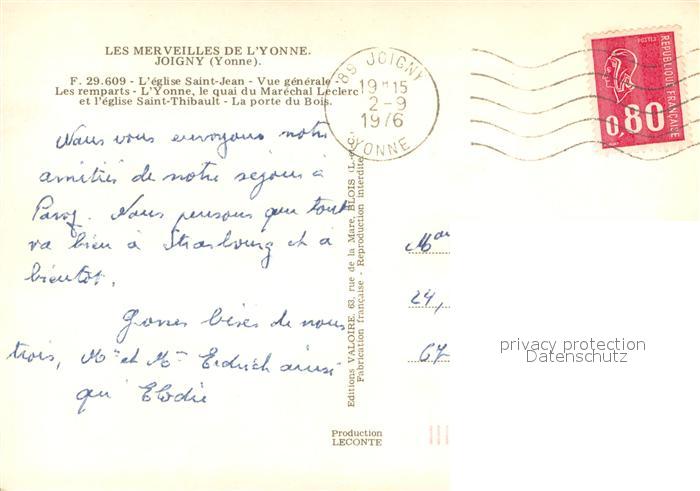 LES MERVEILLES DE L'YONNE.
JOIGNY (Yonne).
F. 29.609 - L'église Saint-Jean - Vue générale
Les remparts - L'Yonne, le quai du Maréchal Leclerc
et l'église Saint-Thibault - La porte du Bois.
Nous vous envoyons notre
amitiés de notre séjour à
Nous pensons que tout
va bien à Strasbourg et à
bientôt.
Grosses bises de nous
trois, Mr et Mme Erdrich ainsi
qu' Elodie
89 JOIGNY
19H15
2-9
1976
YONNE
POSTES
RÉPUBLIQUE FRANÇAISE
0,80
Editions VALOIRE, 63, rue de la Mare, BLOIS
Fabrication française - Reproduction interdite
24,
67
privacy protection
Datenschutz
Production
LECONTE